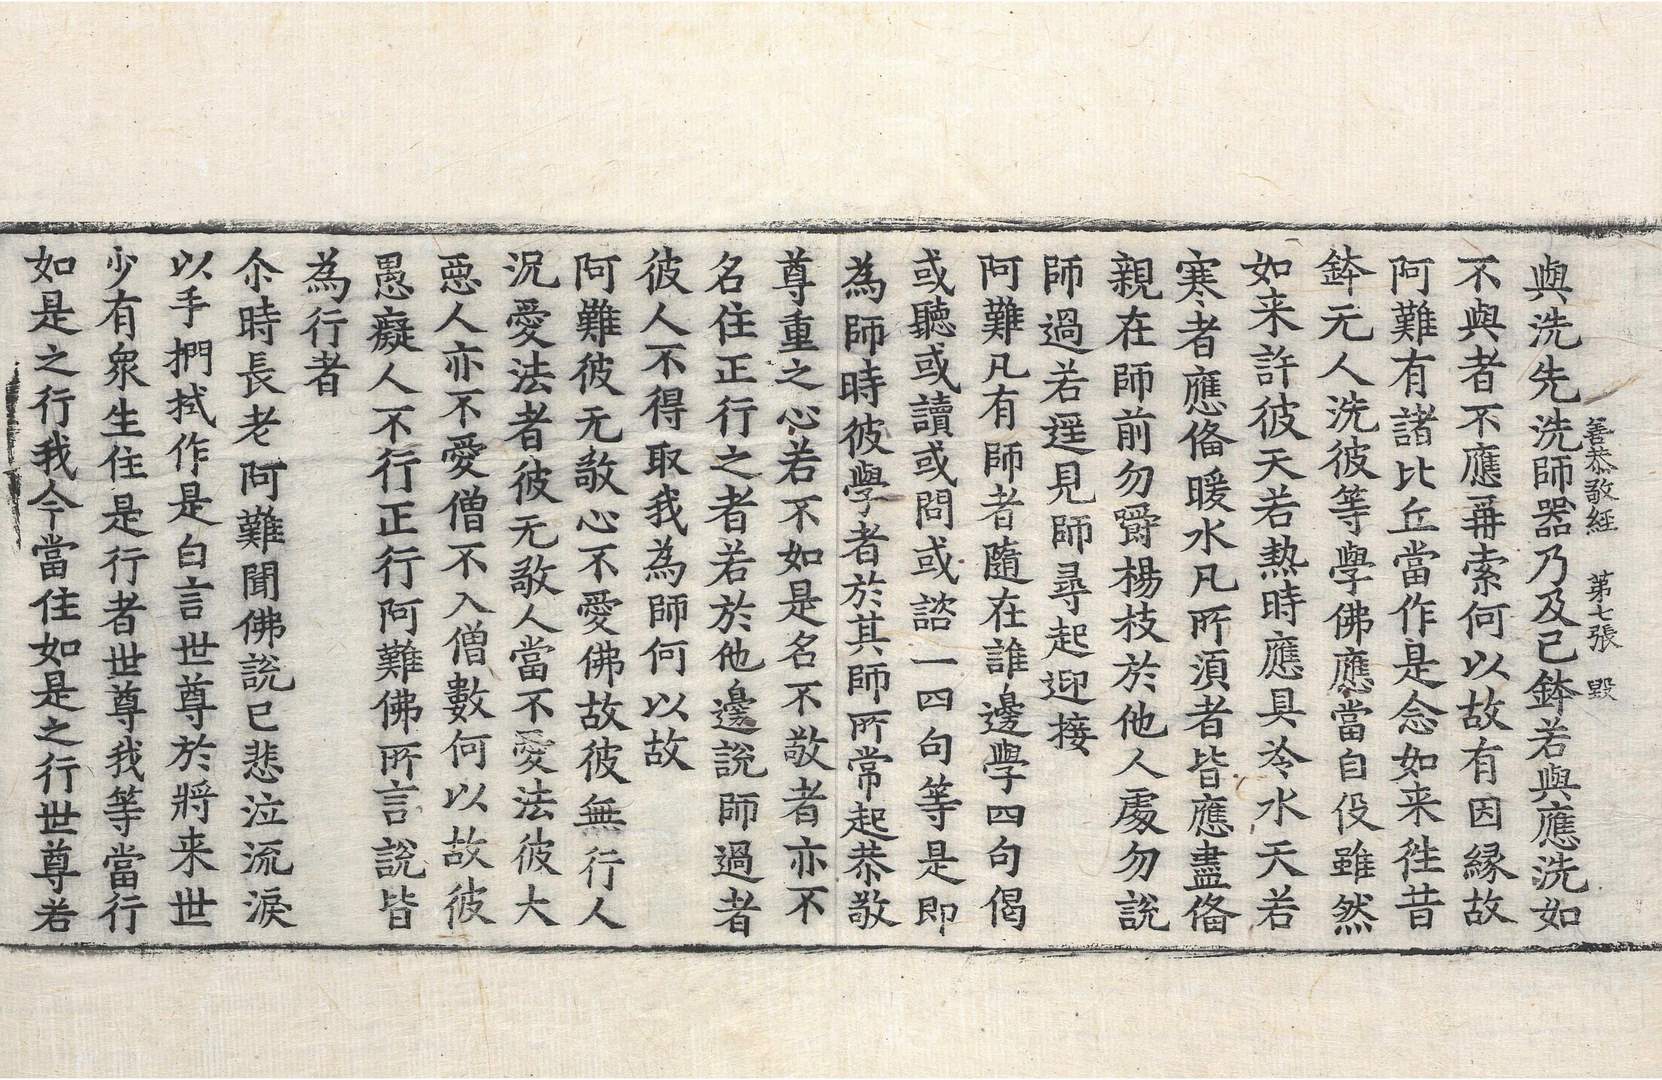 善恭敬經 第七張 毀
與洗先洗師器乃及已鉢若與應洗如
不與者不應再索何以故有因縁故
阿難有諸比丘當作是念如来徃昔
鉢元人洗彼等學佛應當自伇雖然
如来許彼天若熱時應具冷水天若
寒者應俻暖水凡所須者皆應盡俻
親在師前勿嚼楊枝於他人處勿說
師過若遥見師尋起迎接
阿難凡有師者隨在誰邊學四句偈
或聽或讀或問或諮一四句等是即
為師時彼學者於其師所常起恭敬
尊重之心若不如是名不敬者亦不
名住正行之者若於他邊說師過者
彼人不得取我為師何以故
阿難彼无敬心不愛佛故彼無行人
況愛法者彼无敬人當不愛法彼大
惡人亦不愛僧不入僧數何以故彼
愚癡人不行正行阿難佛所言說皆
為行者
尒時長老阿難聞佛說已悲泣流淚
以手捫拭作是白言世尊於將来世
少有衆生住是行者世尊我等當行
如是之行我今當住如是之行世尊若